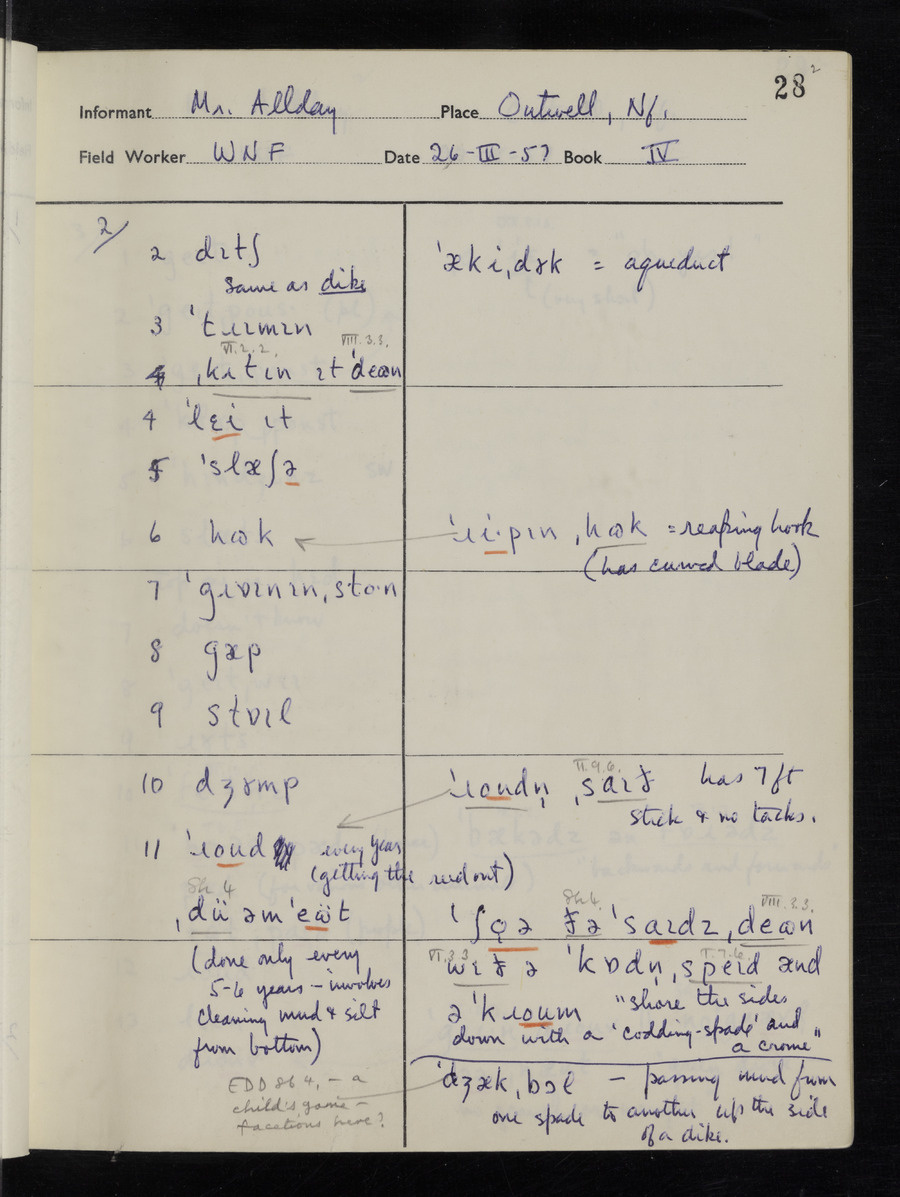 28²
Informant Mr. Allday Place Outwell, Nf.
Field Worker WNF Date 26-III-57 Book IV
2/
2 dɪtʃ
same as dike
ˈækiˌdɤk = aqueduct
3 ˈtɹɪmɪn
VI.2.2. VIII.3.3.
ˌkɪtɪn ɪt ˈdeɷn
4 ˈlɛi ɪt
5 ˈslæʃə
6 hɷk
ˈɹi·pɪn ˌhɷk = reaping hook
(has curved blade)
7 ˈgɹɒɪnɪnˌsto·n
8 gæp
9 stɒɪl
10 dʒɤmp
II.9.6.
ˈɹoudn̩ ˌsaɪð has 7ft
stick & no tacks.
11 ˈɹoud every year
(getting the reed out)
Sh 4
ˌdü əm ˈeɷ̈t
(done only every
5-6 years – involves
cleaning mud & silt
from bottom)
Sh 4. VIII.3.3.
ˈʃo̜ə ðə ˈsaɪdzˌdeɷn
VI.3.3. I.7.6.
wɪð ə ˈkɒdn̩ˌspeɪd ænd
ə ˈkɹoum "shore the sides
down with a 'codding-spade' and
a crome"
ˈdʒækˌbɔl – passing mud from
one spade to another up the side
of a dike.
EDD Sb 4, – a
child's game –
facetious here?